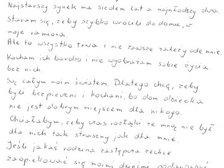 Najstarszy synek ma siedem lat a najmłodszy dwa
Staram się, żeby szybko wrócili do domu, w
moje ramiona.
Ale to wszystko trwa i nie zawsze zależy ode mnie.
Kocham ich bardzo i nie wyobrażam sobie życia
bez nich.
Są całym moim światem. Dlatego chcę, żeby
byli bezpieczni i kochani, bo dom dziecka
nie jest dobrym miejscem dla nikogo.
Chciałabym, żeby czas rozłąki ze mną nie był
dla nich tak straszny jak dla mnie
Jeśli jakaś rodzina zastępcza zechce
zaopiekować się moimi dwoma